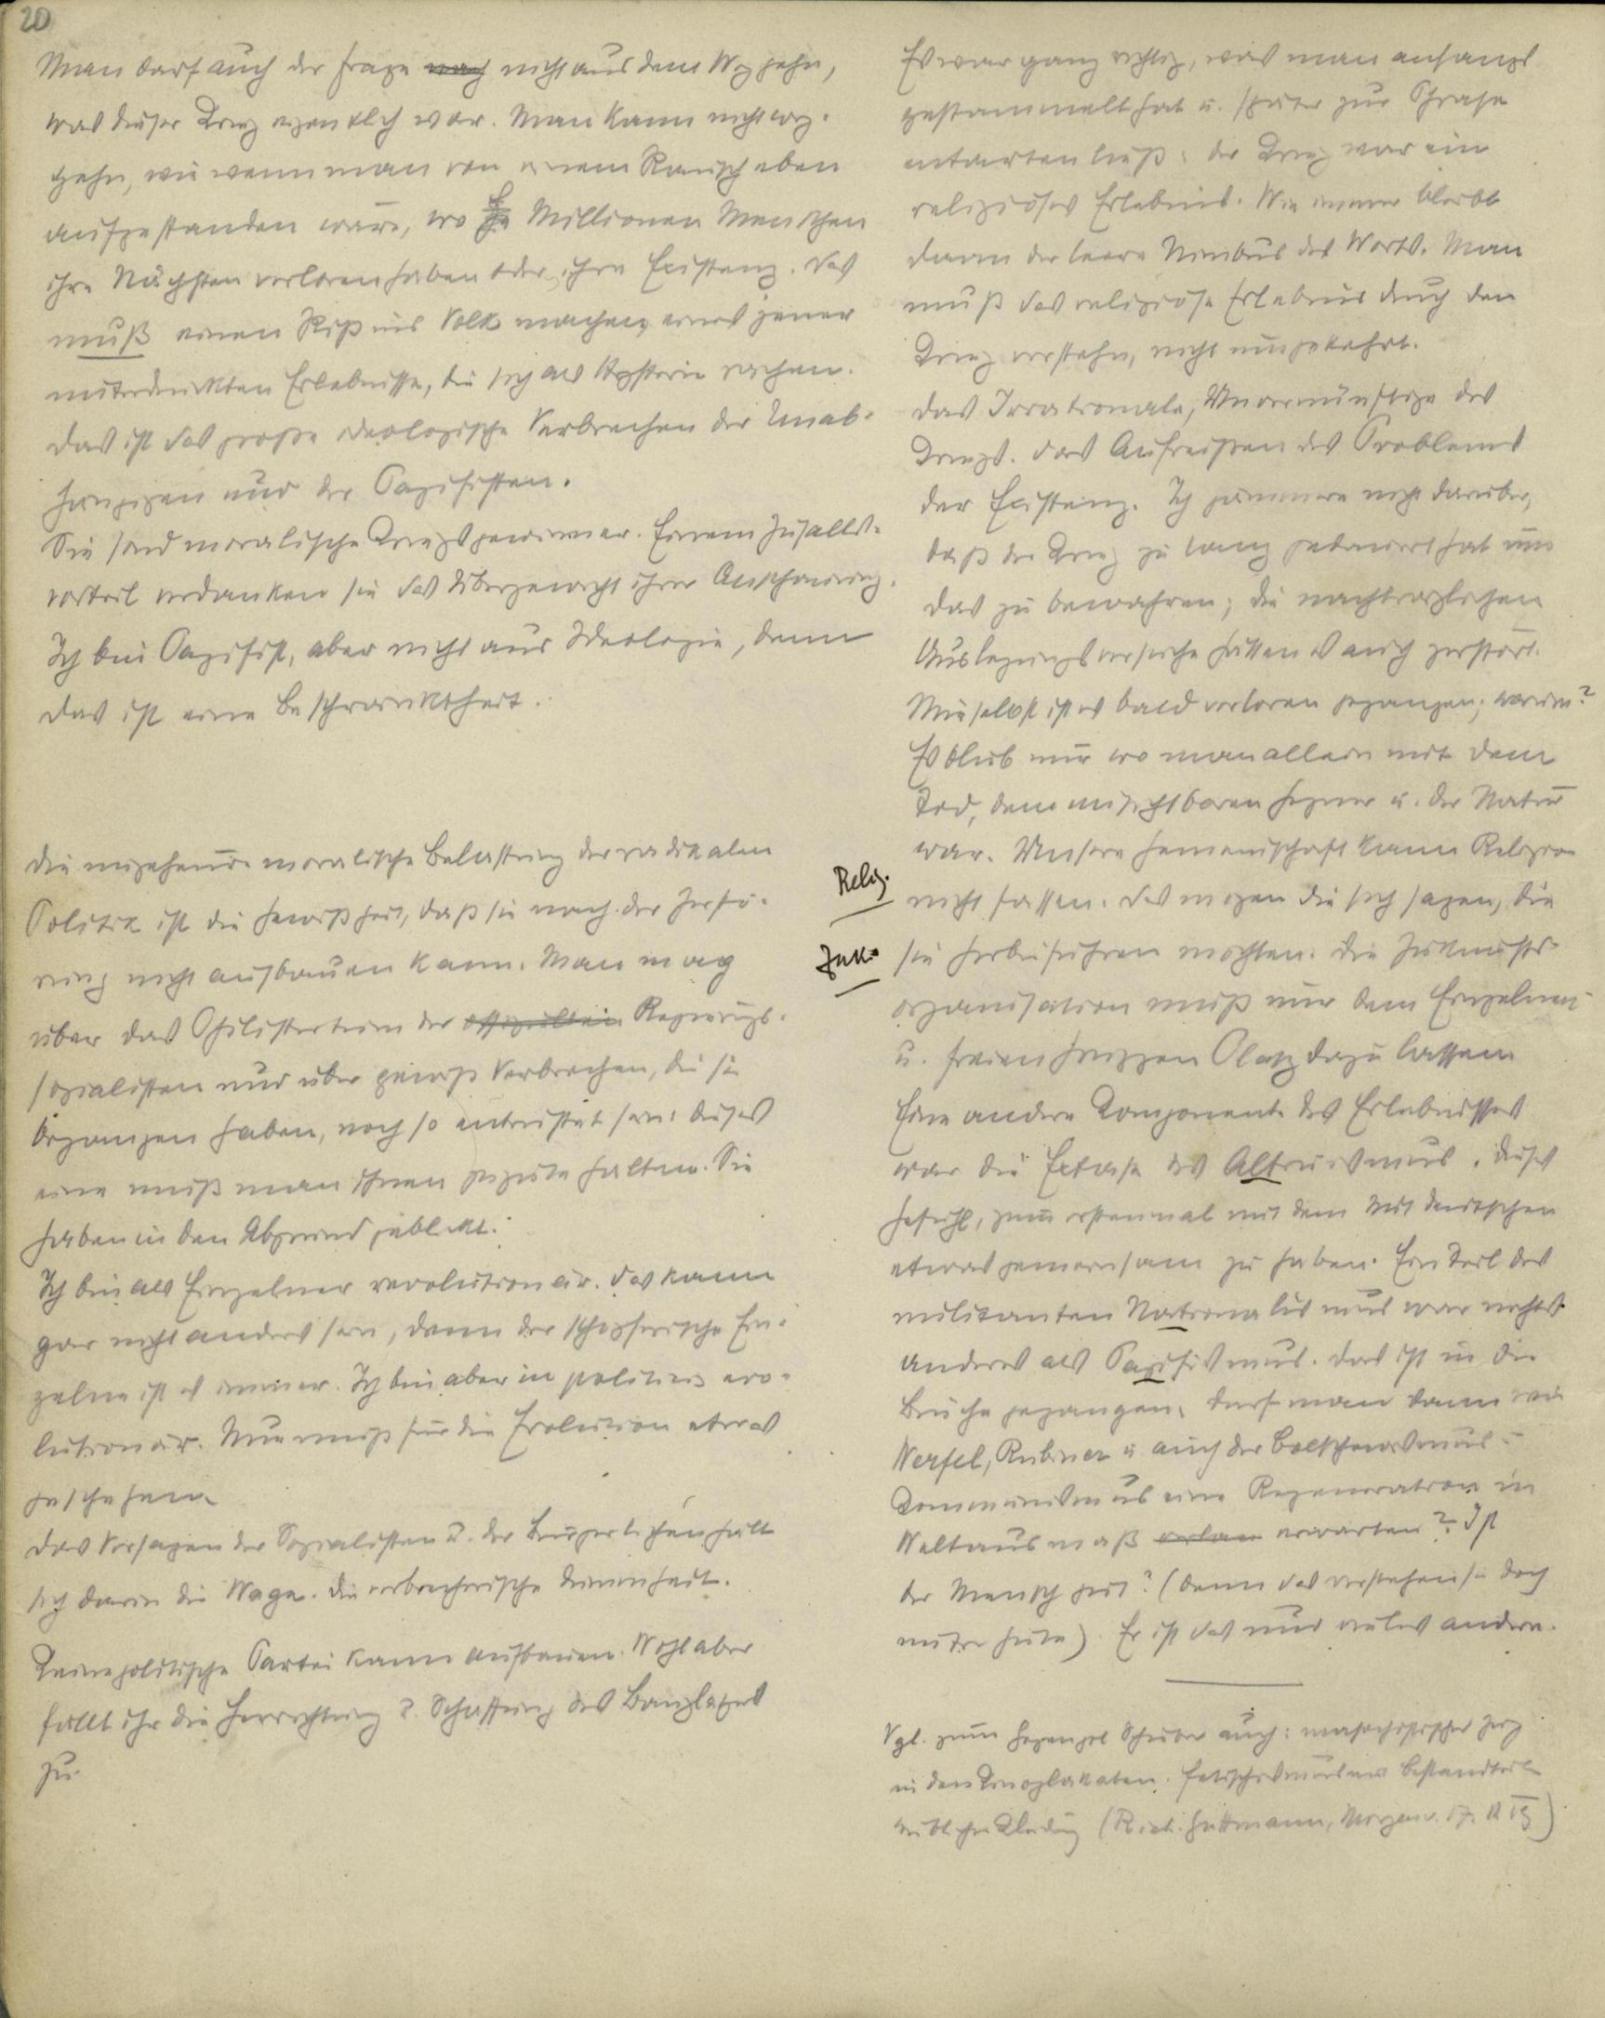 20
Man darf auch der Frage nach nicht aus dem Weg gehn,
was dieser Krieg eigentlich war. Man kann nicht weg-
gehn, wie wenn man von einem Rausch eben
aufgestanden wäre, wo Millionen Menschen
ihre Nächsten verloren haben oder ihre Existenz. Das
muß einen Riß ins Volk machen, eines jener
unterdrückten Erlebnisse, die sich als Hysterie rächen.
Das ist das große ideologische Verbrechen der Unab-
hängigen und der Pazifisten.
Sie sind moralische Kriegsgewinner. Einem Zufalls-
vorteil verdanken sie das Übergewicht ihrer Anschauung.
Ich bin Pazifist, aber nicht aus Ideologie, denn
das ist eine Beschränktheit.
Die ungeheure moralische Belastung der radikalen
Politik ist die Gewißheit, daß sie nach der Zerstö-
rung nicht aufbauen kann. Man mag
über das Philistertum der offiziellen Regierungs-
sozialisten und über gewisse Verbrechen, die sie
begangen haben, noch so entrüstet sein: dieses
eine muß man ihnen zugute halten. Sie
haben in den Abgrund geblickt.
Ich bin als Einzelner revolutionär. Das kann
gar nicht anders sein, denn der schöpferische Ein-
zelne ist es immer. Ich bin aber in politicis evo-
lutionär. Nur muß für die Evolution etwas
geschehen.
Das Versagen der Sozialisten u. der Bürgerlichen hält
sich darin die Wage. Die verbrecherische Dummheit.
Keine politische Partei kann aufbauen. Wohl aber
fällt ihr die Herrichtung u. Schaffung des Bauplatzes
zu.
Es war ganz richtig, was man anfangs
gestammelt hat u. später zur Phrase
entarten ließ: der Krieg war ein
religiöses Erlebnis. Wie immer bleibt
dann der leere Nimbus des Worts. Man
muß das religiöse Erlebnis durch den
Krieg verstehn, nicht umgekehrt.
Das Irrationale, Unvernünftige des
Kriegs. Das Aufreißen des Problems
der Existenz. Ich jammere nicht darüber,
daß der Krieg zu lang gedauert hat um
das zu bewahren; die nachträglichen
Auslegungsversuche hätten es auch zerstört.
Mir selbst ist es bald verloren gegangen; warum?
Es blieb nur wo man allein mit dem
Tod, dem unsichtbaren Gegner u. der Natur
war. Unsere Gemeinschaft kann Religion
Relig.
nicht fassen. Das mögen die sich sagen, die
Zuk.
sie herbeiführen möchten. Die Zukunfts-
organisation muß nur dem Einzelnen
u. freien Gruppen Platz dazu lassen
Eine andere Komponente des Erlebnisses
war die Extase des Altruismus. Dieses
Gefühl, zum erstenmal mit dem Mitdeutschen
etwas gemeinsam zu haben. Ein Teil des
militanten Nationalismus war nichts
anderes als Pazifismus. Das ist in die
Brüche gegangen. Darf man dann wie
Werfel, Rubiner u auch der Bolschewismus-
Kommunismus eine Regeneration in
Weltausmaß erwarten? Ist
der Mensch gut? (denn das verstehen sie doch
unter Güte) Er ist das und vieles andere.
Vgl. zum auch: masochistischer Zug
in den Kinoplakaten. Fetischismus
Kleidung (Rich. Guttmann,